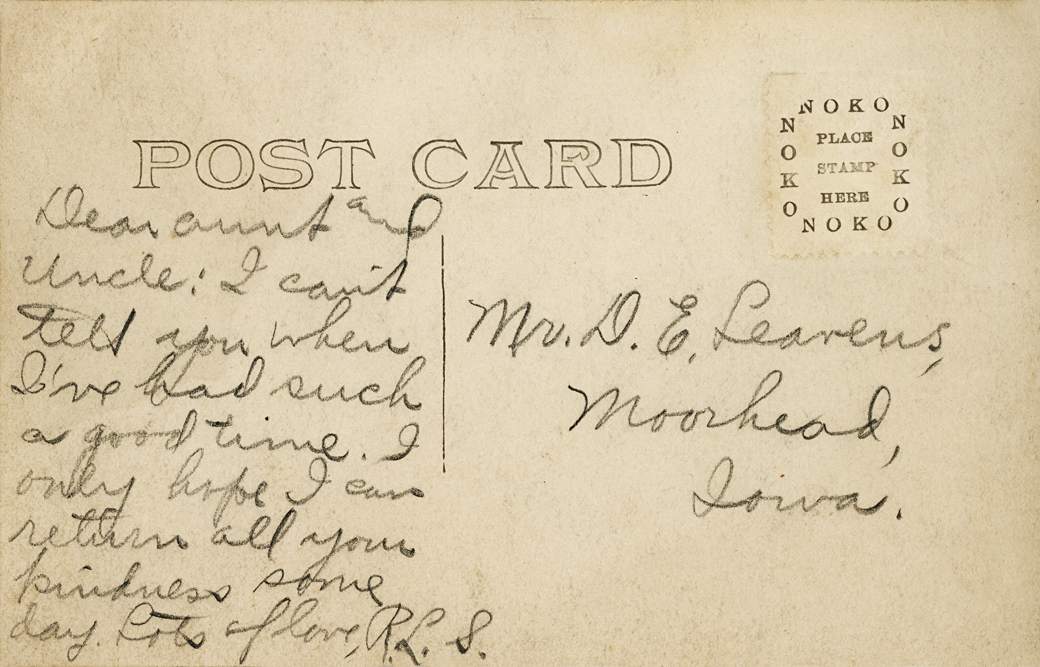 POST CARD
NOKO
NOKO
NOKO
NOKO
PLACE
STAMP
HERE
Dear aunt and
Uncle: I can't
tell you when
I've had such
a good time. I
only hope I can
return all your
kindness some
day. Lots of love, R.L.S.
Mr. D. E. Leavens,
Moorhead,
Iowa.